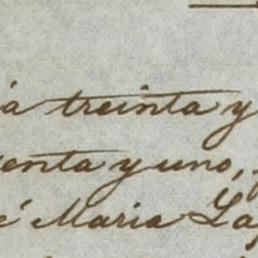 á treinta y
enta y uno,
é Maria La